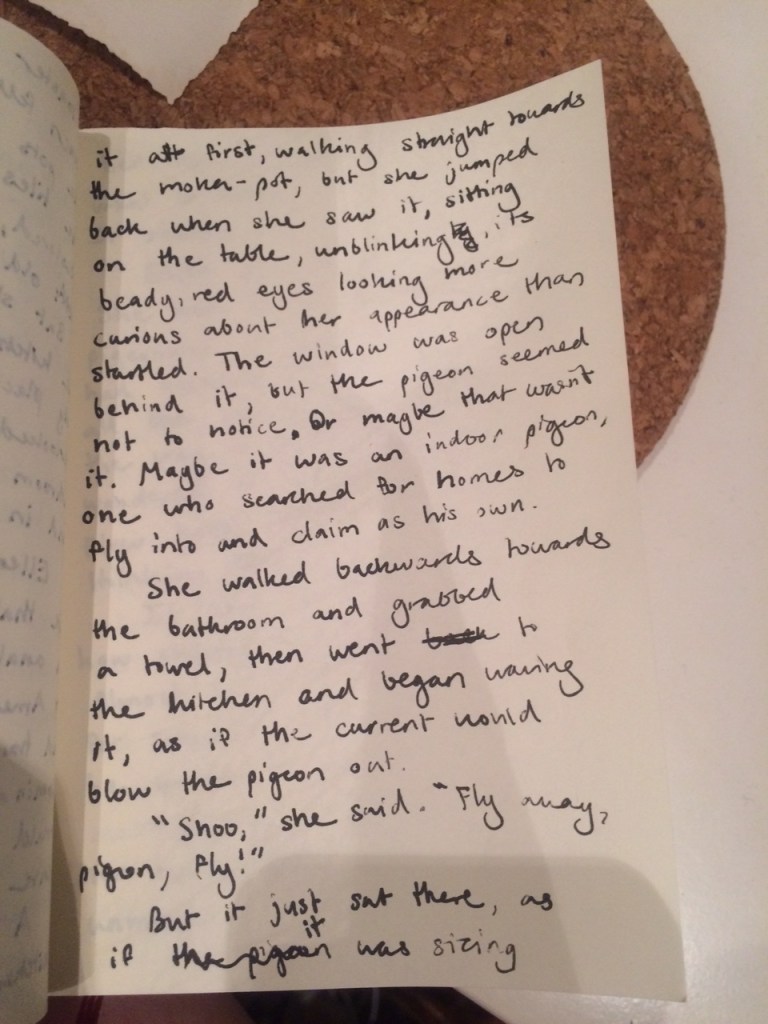 it at first, walking straight towards
the moka-pot, but she jumped
back when she saw it, sitting
on the table, unblinking, its
beady, red eyes looking more
curious about her appearance than
startled. The window was open
behind it, but the pigeon seemed
not to notice. Or maybe that wasn't
it. Maybe it was an indoor pigeon,
one who searched for homes to
fly into and claim as his own.
She walked backwards towards
the bathroom and grabbed
a towel, then went back to
the kitchen and began waving
it, as if the current would
blow the pigeon out.
"Shoo," she said. "Fly away,
pigeon, fly!"
But it just sat there, as
if the pigeon it was sizing